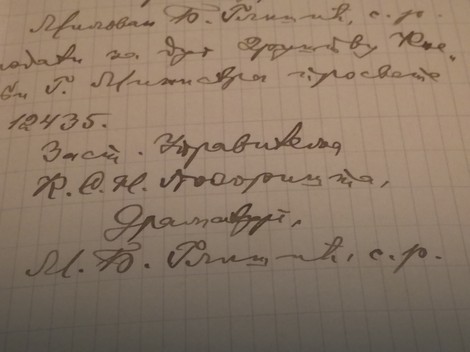 Милован Ђ. Глишић, с. р.
за дуг Друштву
Г. Министра просвете
12435.
Заст. Управитеља
К. С. Н. Позоришта,
Драматург,
М. Ђ. Глишић, с. р.